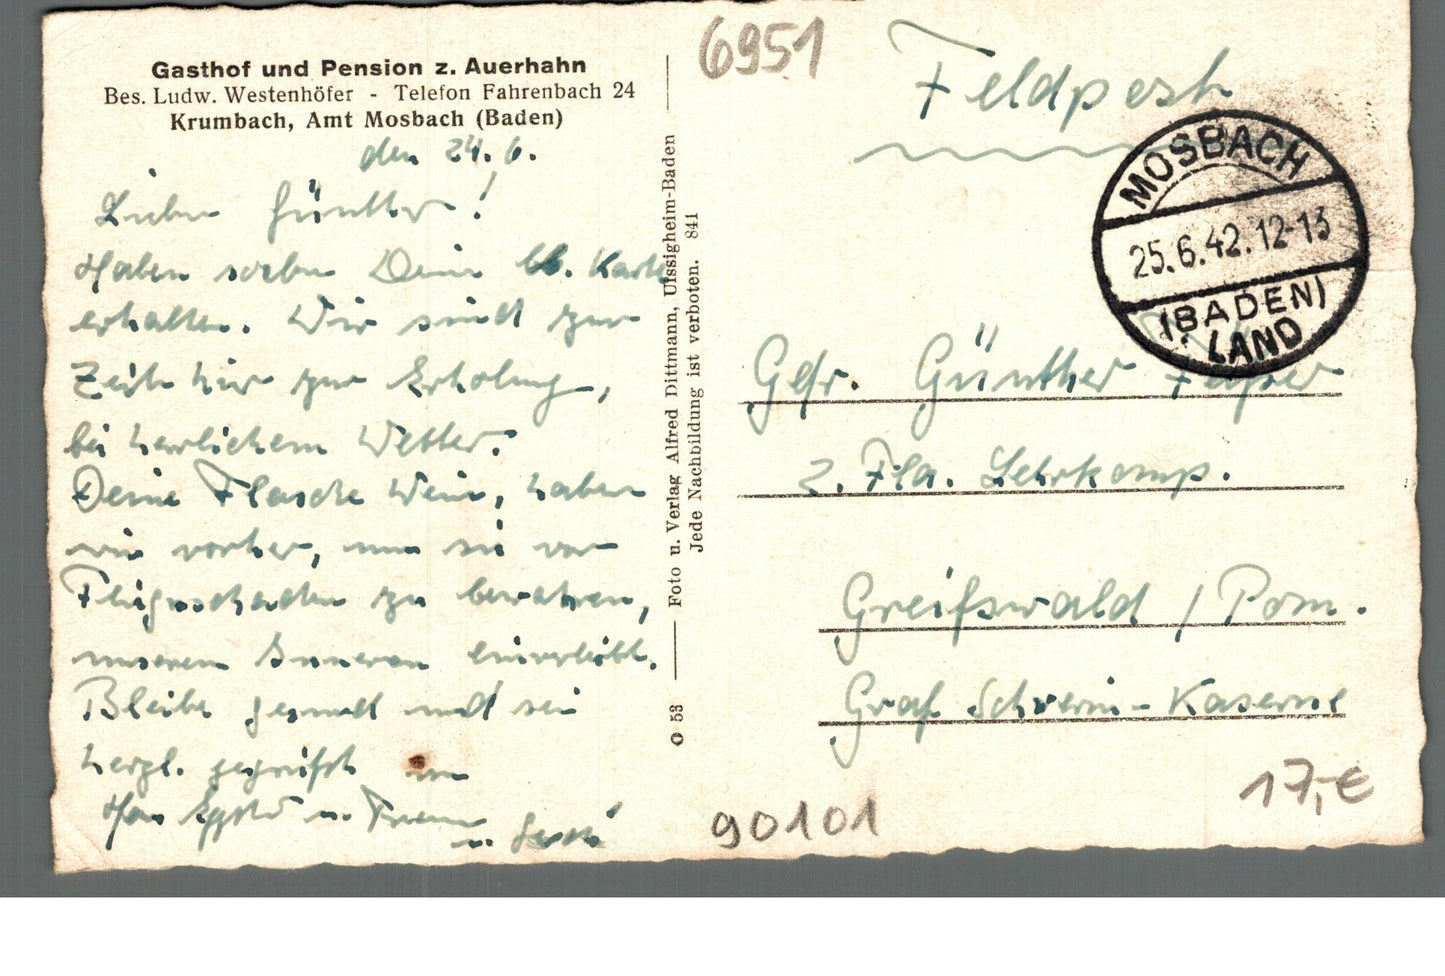 Gasthof und Pension z. Auerhahn
Bes. Ludw. Westenhöfer - Telefon Fahrenbach 24
Krumbach, Amt Mosbach (Baden)
den 24. 6.
Lieber Günther!
Haben soeben Deine lb. Karte
erhalten. Wir sind zur
Zeit hier zur Erholung,
bei herrlichem Wetter.
Deine Flasche Wein, haben
wir vorher, um sie vor
Fliegerschaden zu bewahren,
unserem Inneren einverleibt.
Bleibe gesund und sei
herzl. gegrüßt von
u. Frau
u.
Foto u. Verlag Alfred Dittmann, Uissigheim-Baden
Jede Nachbildung ist verboten. 841
O 53
6951
Feldpost
MOSBACH
25.6.42.12-13
(BADEN)
LAND
Gefr. Günther
2. Fla. Lehrkomp.
Greifswald / Pom.
Graf Schwerin-Kaserne
17,-€
90101